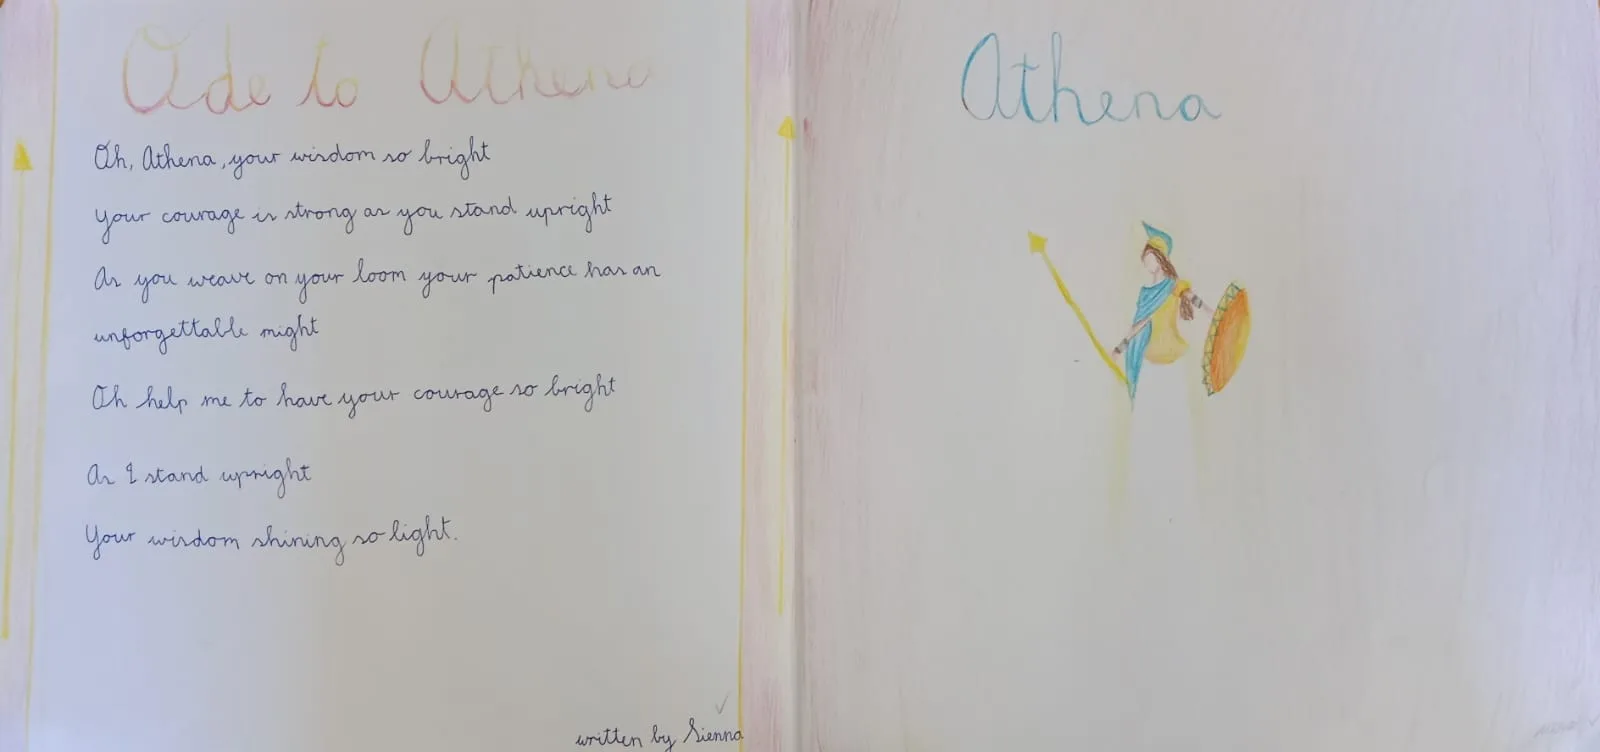 Ode to Athena
Oh, Athena, your wisdom so bright
Your courage is strong as you stand upright
As you weave on your loom your patience has an
unforgettable might
Oh help me to have your courage so bright
As I stand upright
Your wisdom shining so light.
written by Sienna
Athena